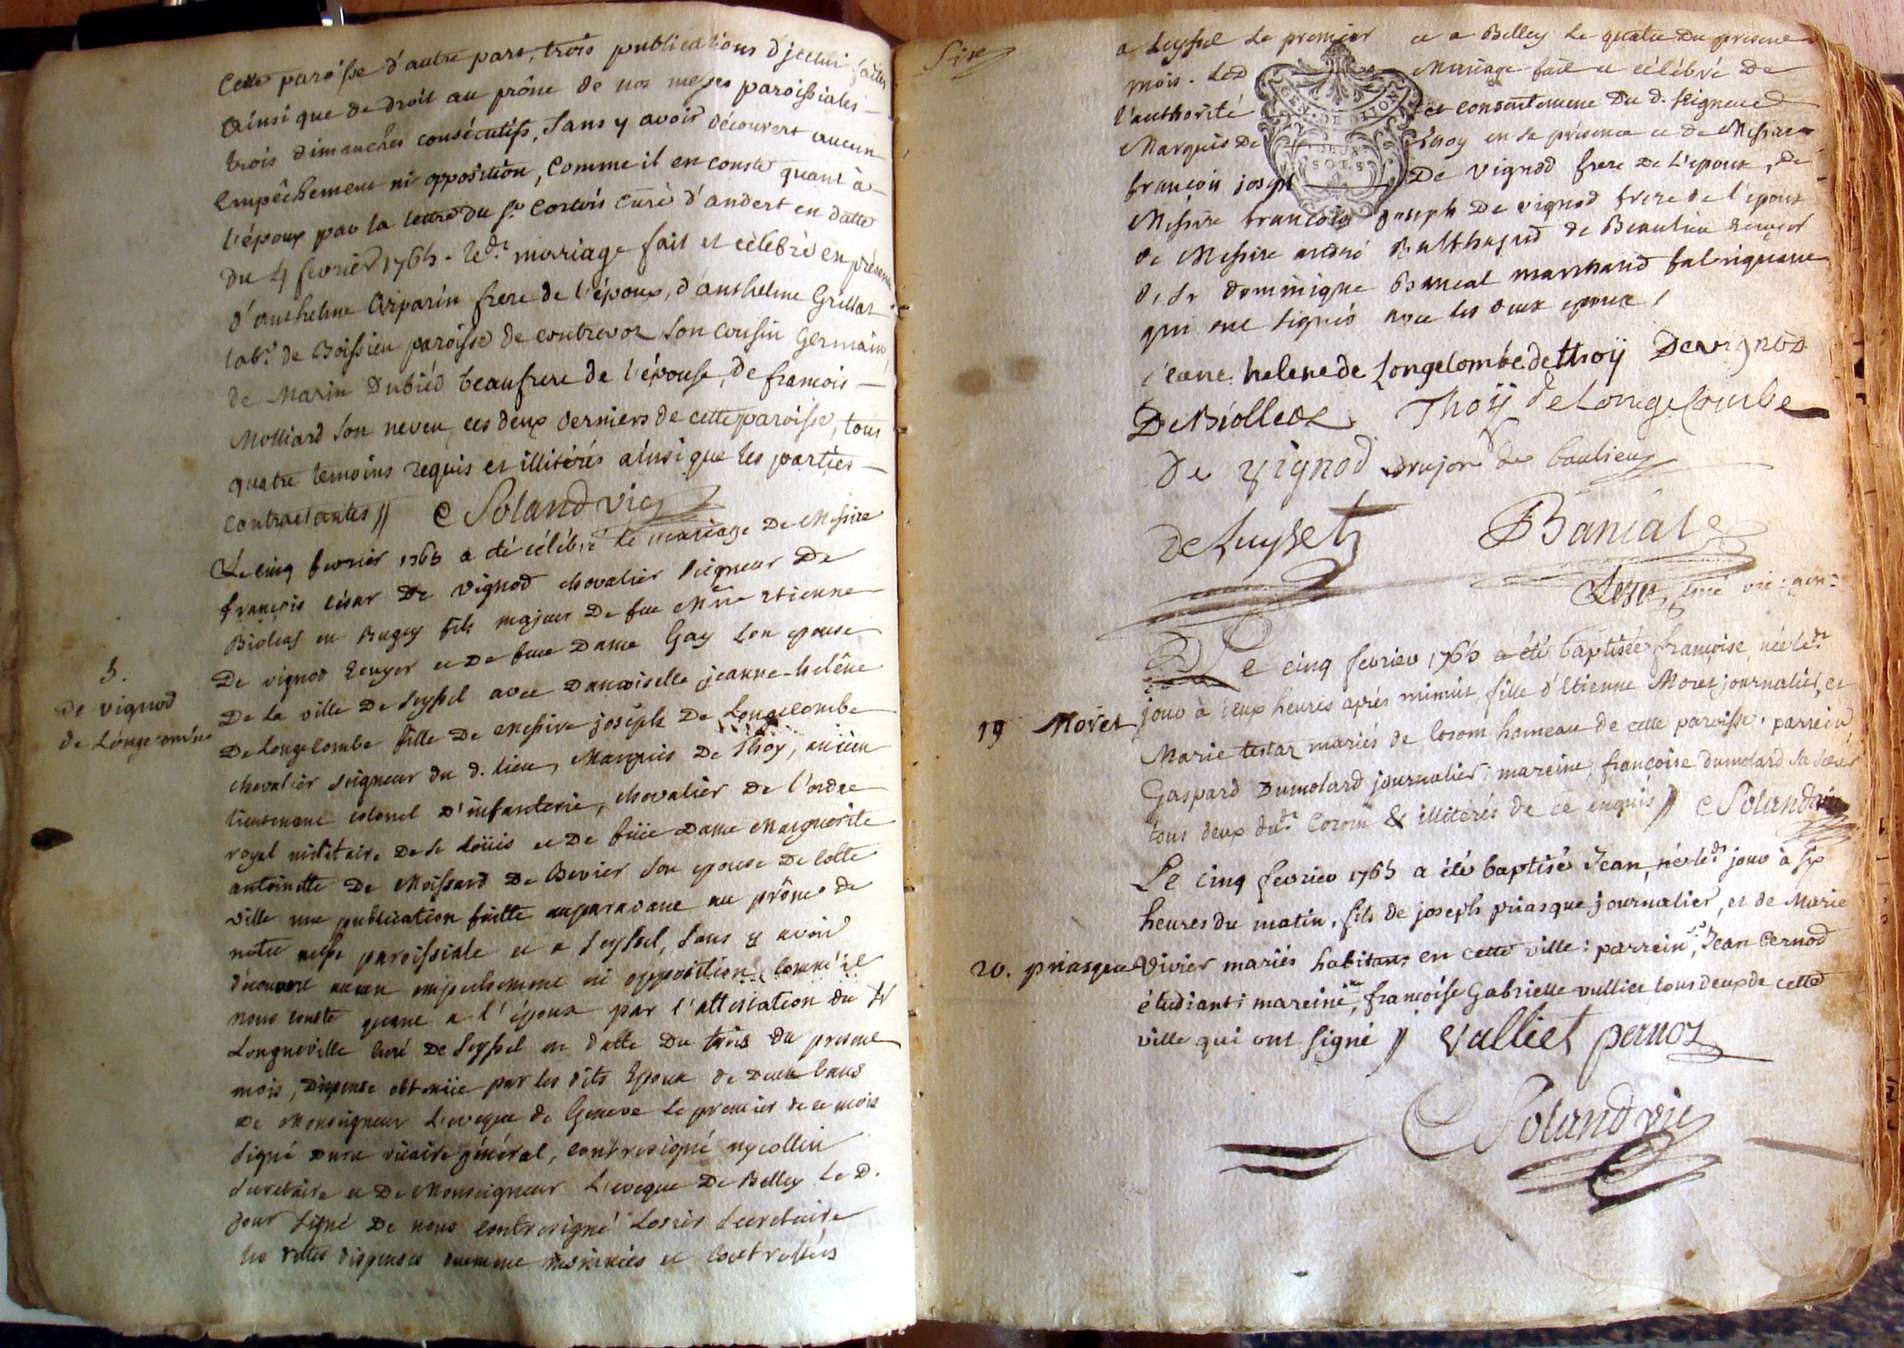 Cette paroisse d'autre part, trois publications d'jcelui faites
Ainsi que de droit au prône de nos messes paroissiales
trois dimanches consécutifs, sans y avoir découvert aucun
Empêchement ni opposition, Comme il en conste quant à
l'époux par la lettre du sr Cortois curé d'andert en datte
du 4 fevrier 1765. le dt mariage fait et célébré en présence
d'anthelme Carparin frere de l'époux, d'anthelme Grillat
labr de Boissieu paroisse de contrevoz son cousin Germain,
de Marin Dubied beaufrere de l'épouse, de francois
Molliard son neveu, ces deux derniers de cette paroisse, tous
quatre temoins requis et illitérés ainsi que les parties
Contractantes // C Soland vic
Le cinq fevrier 1765 a été célébré le mariage De Messire
françois césar De vignod chevalier seigneur De
Bioleaz en Bugey fils majeur De feu Mre Etienne
De vignod Ecuyer et De feue Dame Gay son epouse
De La ville De seyssel avec Damoiselle jeanne helêne
De Longecombe fille De messire joseph De Longecombe
chevalier seigneur du d. lieu, Marquis De Thoy, ancien
lieutenant colonel D'infanterie, chevalier De l'ordre
royal militaire De st Loüis et De füe Dame Marguerite
antoinette De Moissard De Bevier son epouse De cette
ville une publication faitte auparavant au prône de
notre messe paroissiale et a seyssel, sans y avoir
découvert aucun empechement ni opposition comme il
nous conste quant a l'époux par l'attestation du sr
Longueville curé De seyssel en datte Du trois du present
mois, Dispense obtenüe par les dits Epoux de Deux bans
De Monseigneur L'eveque de Geneve Le premier de ce mois
signé vicaire général, contresigné nycollin
secretaire et De Monseigneur L'eveque De Belley Le D.
jour signé De nous contresigné secretaire
les dittes dispenses duement insinuées et controllées
3.
de vignod
de Longecombe
a seyssel Le premier et a Belley Le quatre Du present
mois. Led Mariage fait et célébré De
l'authorité et consentement Du d. seigneur
Marquis De thoy en sa présence et de Messire
françois joseph De vignod frere De L'epoux, De
Messire francois joseph De vignod frere de l'epoux
de Messire andré Balthasard de Beaulieu Ecuyer
de sr dominique Bancal marchand fabriquant
qui ont signés avec les deux epoux /
GEN. DE DIJON
DEUX
SOLS
jeanne helene de Longecombe de thoÿ Devignod
De Biolleaz Thoÿ de Longecombe
De vignod de baulieu
de Luyset Bancal
curé vic: gen:
Le cinq fevrier 1765 a été baptisée françoise, née le dt
jour à deux heures aprés minuit, fille d'Etienne Moret journalier, et
Marie testaz mariés de Coron hameau de cette paroisse: parrein,
Gaspard Dumolard journalier: mareine, françoise Dumolard sa soeur
tous deux du dt Coron & illitérés de ce enquis // C Soland vic
19 Moret
Le cinq fevrier 1765 a été baptisé Jean, né le dt jour à six
heures du matin, fils de joseph priasque journalier, et de Marie
vivier mariés habitans en cette ville: parrein, sr Jean Pernod
étudiant: mareine, françoise Gabrielle vulliet tous deux de cette
ville qui ont signé // Vulliet pernoz
20. priasque
C Soland vic